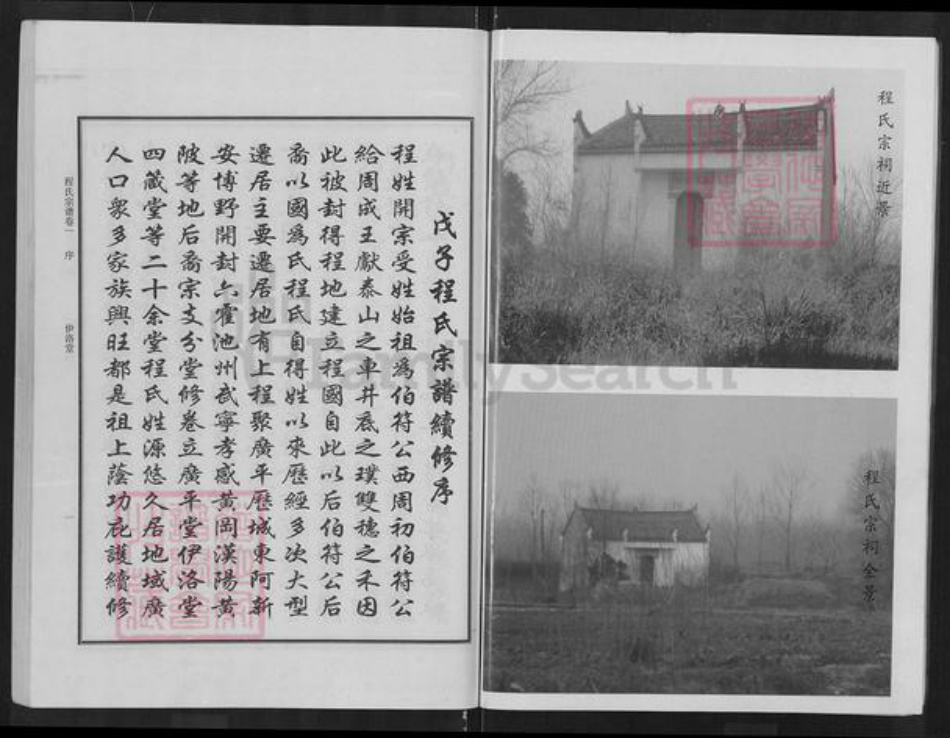 程氏宗祠近景
程氏宗祠全景
戊子程氏宗譜續修序
程姓開宗受姓始祖為伯符公西周初伯符公
給周成王獻泰山之車井底之璞雙穗之禾因
此被封得程地建立程國自此以后伯符公后
裔以國為氏程氏自得姓以來歷經多次大型
遷居主要遷居地有上程聚廣平歷城東阿新
安博野開封六霍池州武寧孝感黃岡漢陽黃
陂等地后裔宗支分堂修卷立廣平堂伊洛堂
四藏堂等二十余堂程氏姓源悠久居地域廣
人口衆多家族興旺都是祖上蔭功庇護續修
程氏宗谱卷一 序 伊洛堂 一
FamilySearch